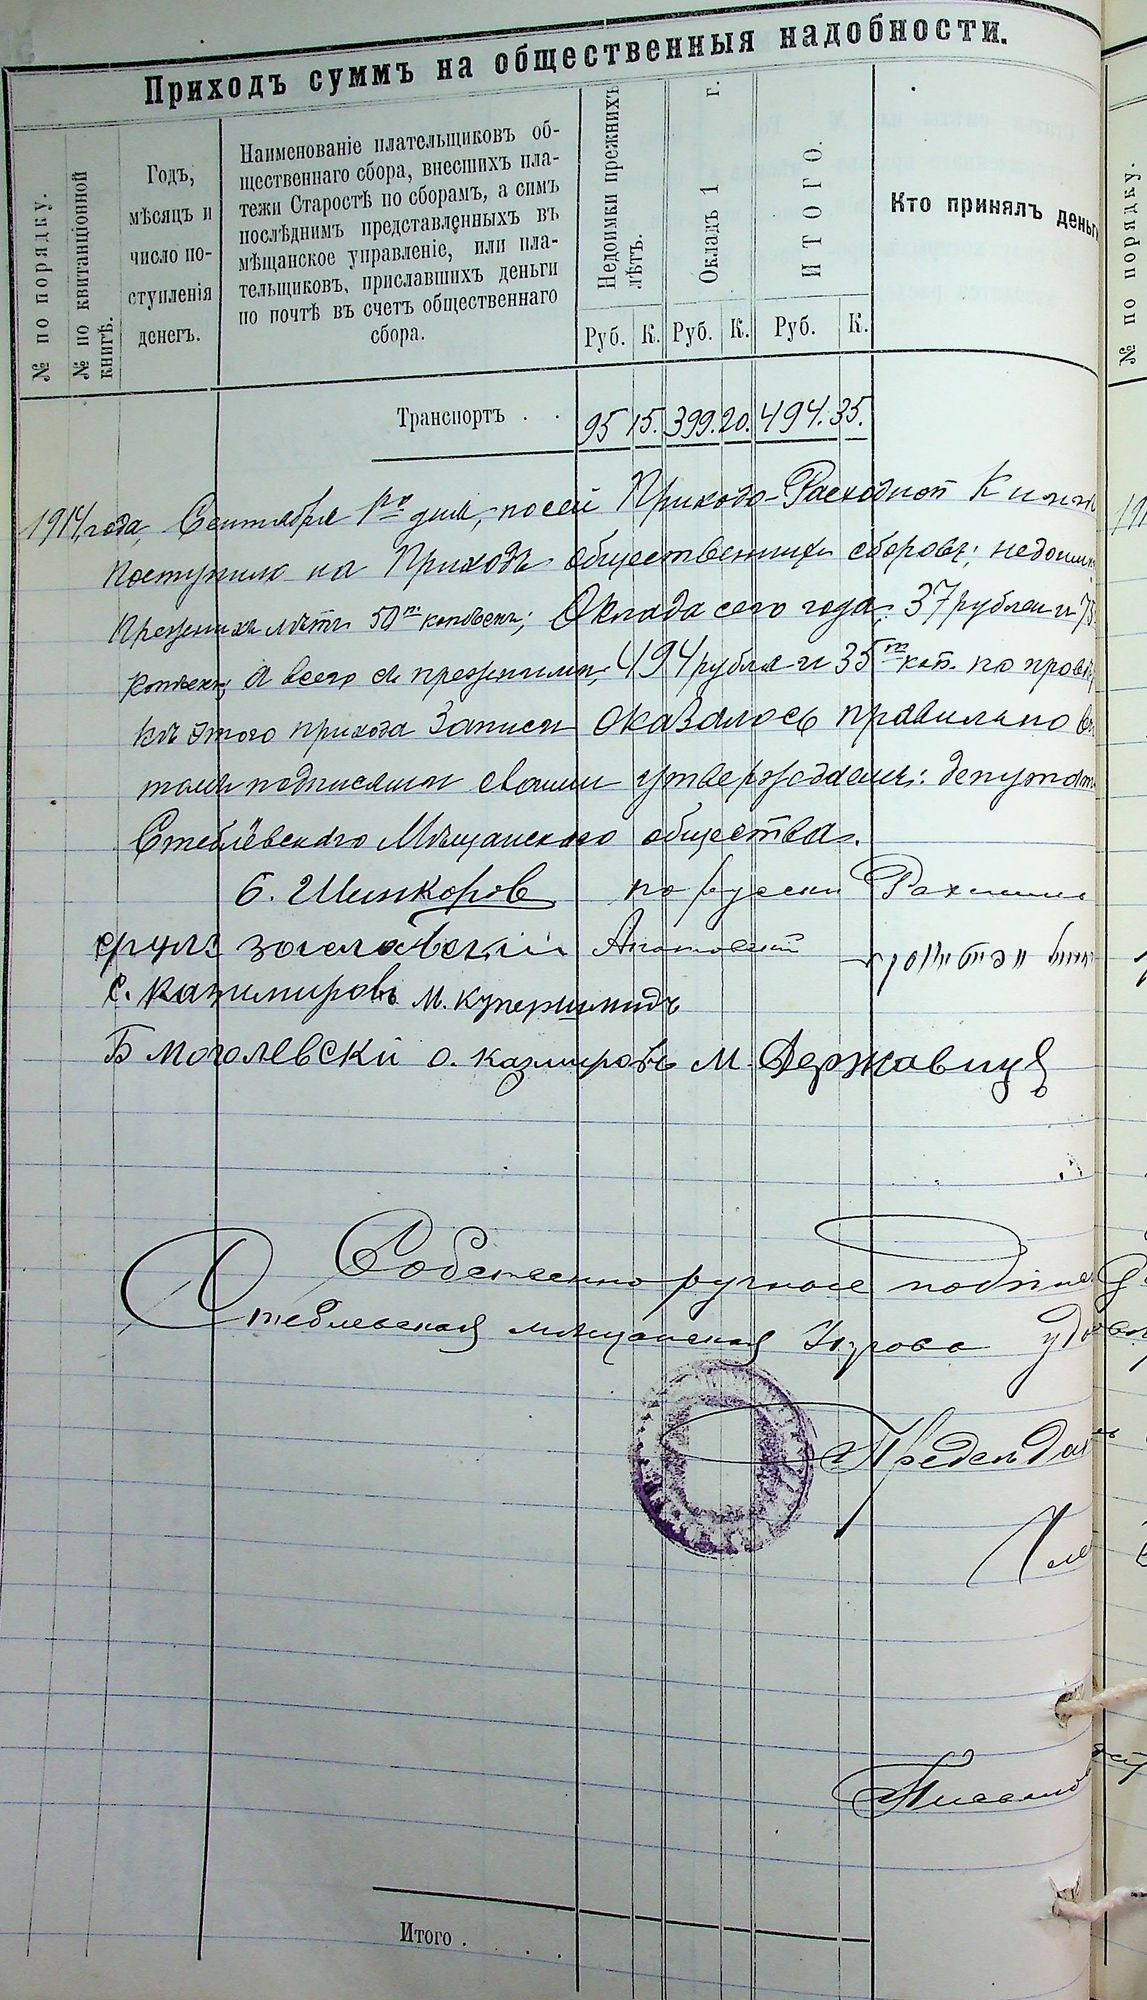 Приходъ суммъ на общественныя надобности.
№ по порядку.
№ по квитанціонной книгѣ.
Годъ,
мѣсяцъ и
число по-
ступленія
денегъ.
Наименованіе плательщиковъ об-
щественнаго сбора, внесшихъ пла-
тежи Старостѣ по сборамъ, а симъ
послѣднимъ представленныхъ въ
мѣщанское управленіе, или пла-
тельщиковъ, приславшихъ деньги
по почтѣ въ счетъ общественнаго
сбора.
Недоимки прежнихъ
лѣтъ.
Окладъ 1 г.
ИТОГО.
Руб. К. Руб. К. Руб. К.
Кто принялъ деньг
№ по порядку.
Транспортъ . . 95 15. 399. 20. 494. 35.
1914 года, Сентября 1го дня, по сей Приходо-Расходной Книг
Поступило на Приходъ общественныхъ сборовъ; недоим
Прежнихъ лѣтъ 50т копѣекъ; Оклада сего года, 37 рублей и 75
копѣекъ, а всего съ прежними, 494 рубля и 35т коп. по провѣр
къ этого прихода Записи оказалось правильно в
томъ подписями своими утверждаемъ: депутат
Стеблёвского Мѣщанского общества.
Б. Шинкоров по русски Рахмиль
срулз заславский
С. Казимировъ М. Купершмидъ
Б Моголевский О. казмировъ М. Державиц
Собственноручное подпис
Стеблевская мѣщанская Управа удов
Предсѣдат
Чле
Письмо
Итого . . . .